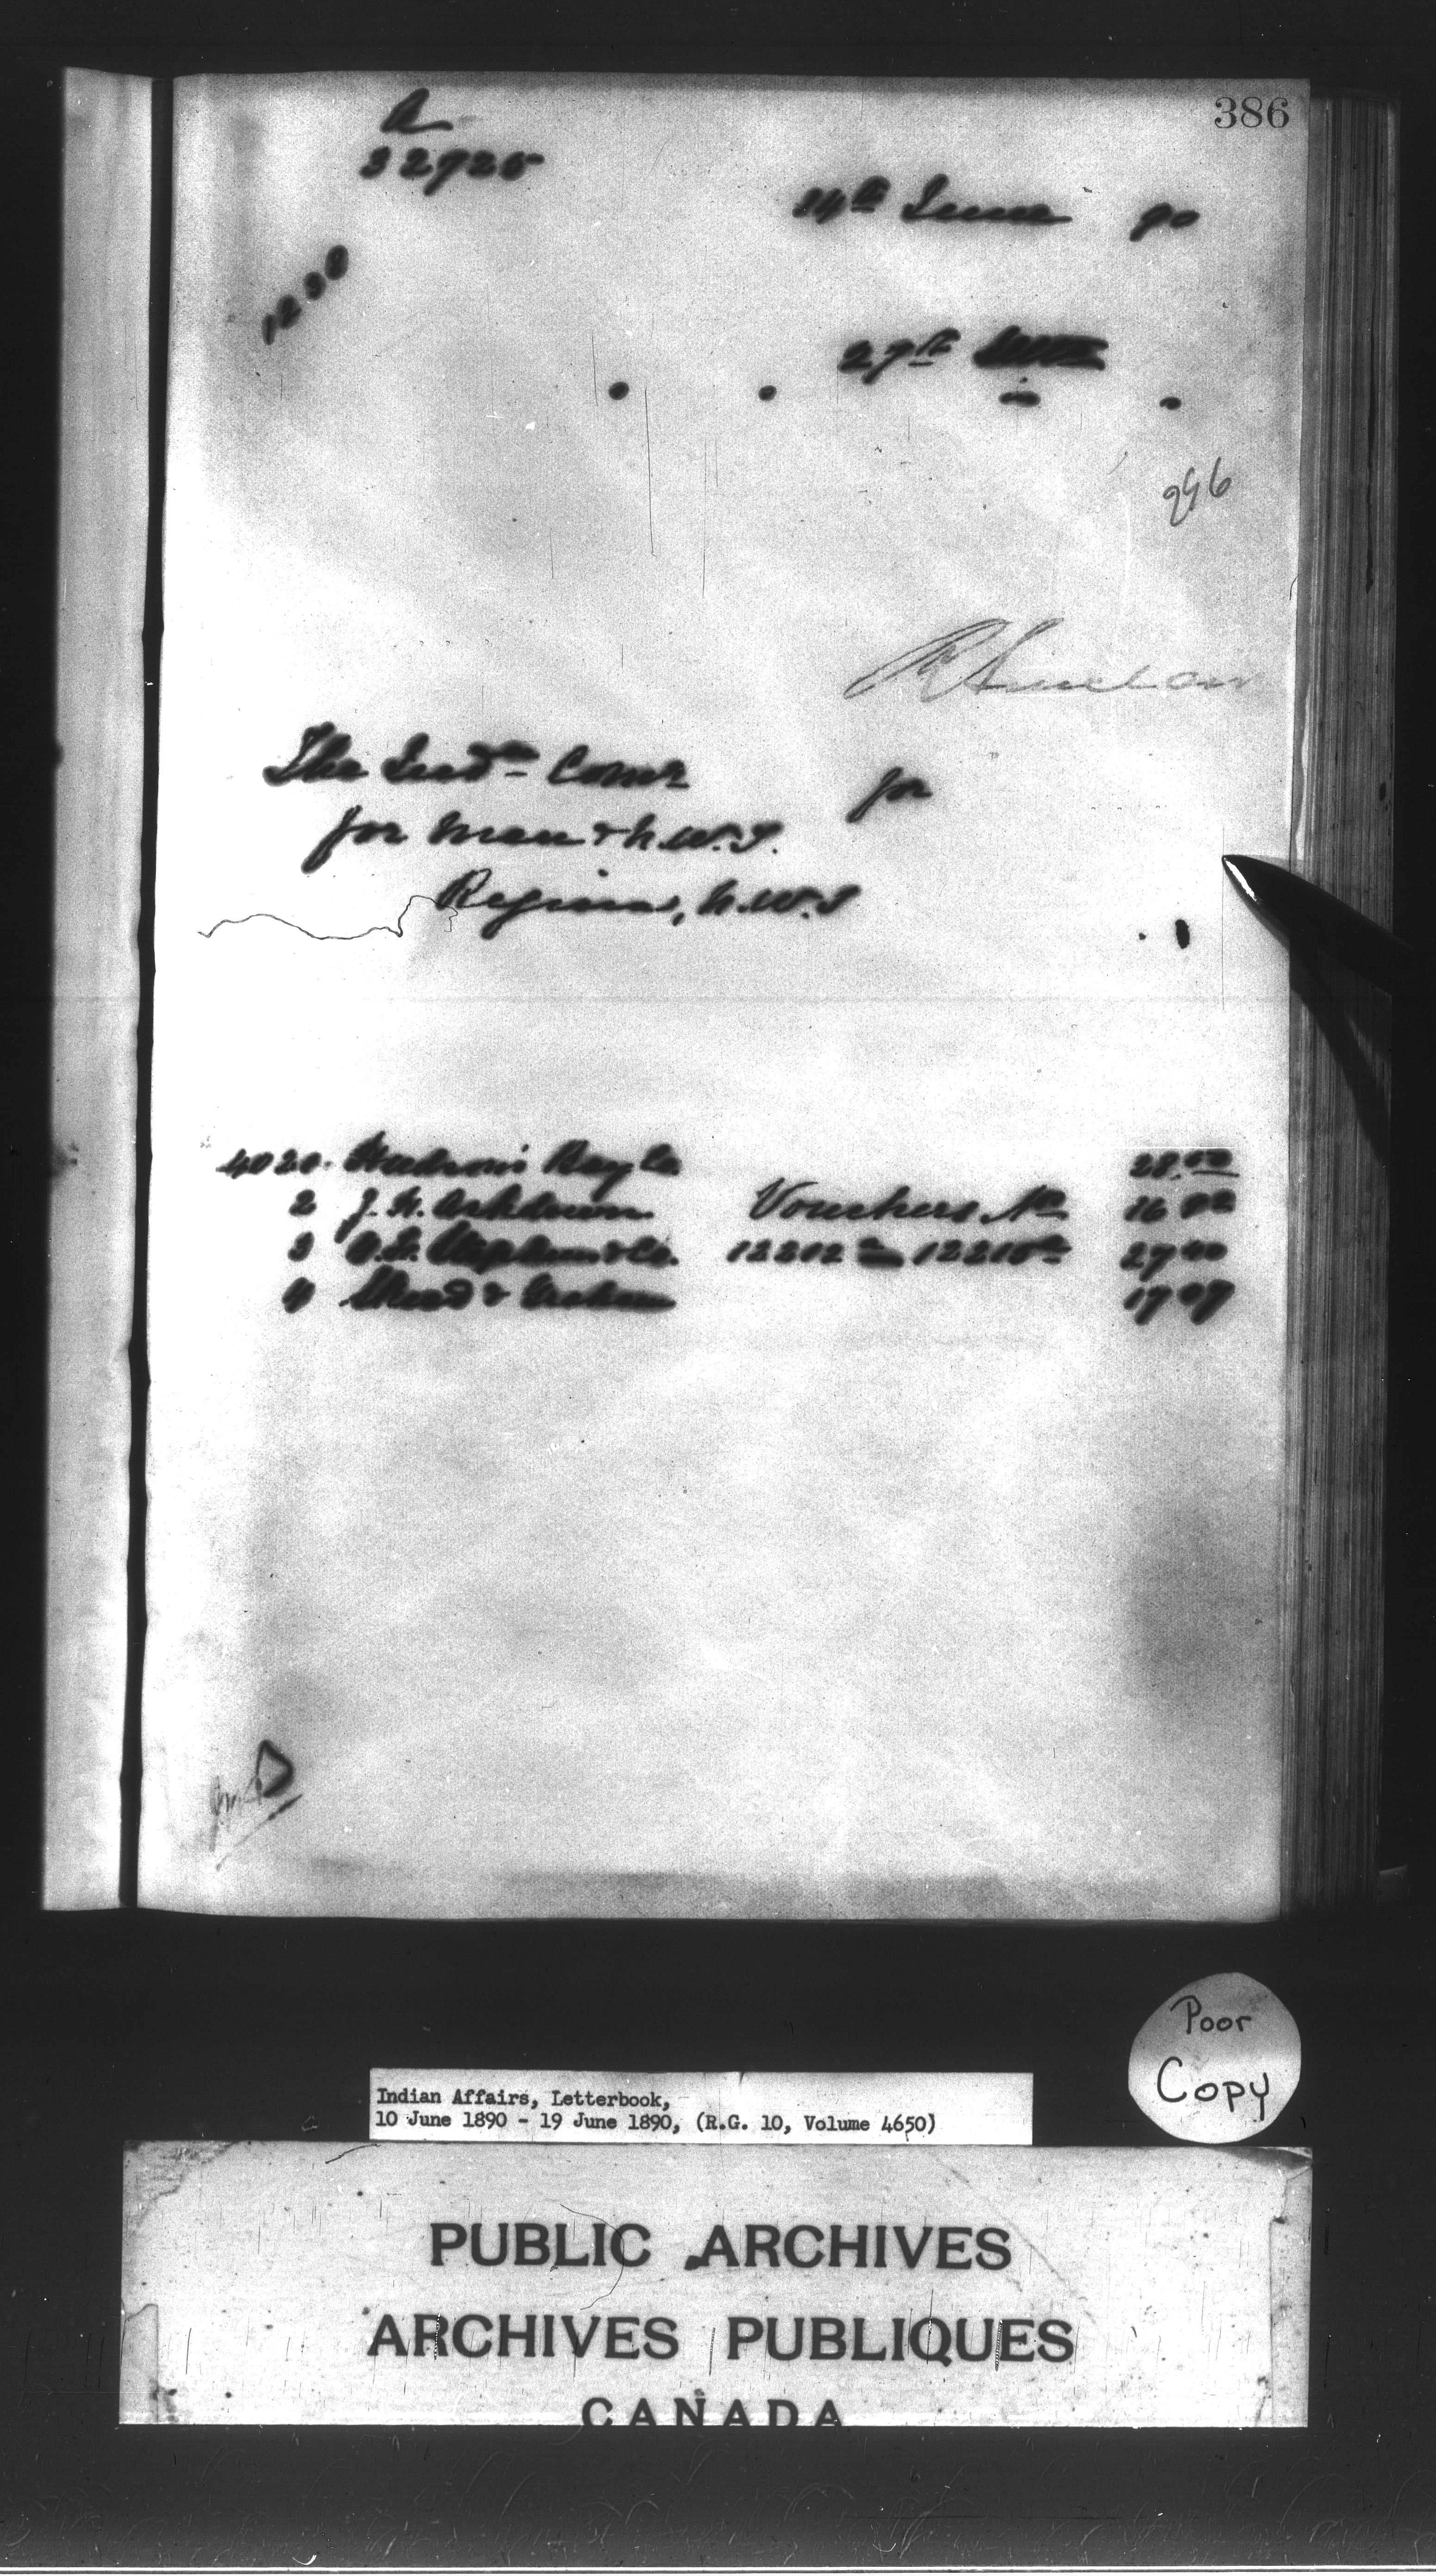 386
A
32925
14th June 90
1238
27th
296
R Sinclair
The Indn Comr for
for Man & N.W.T.
Regina, N.W.T
4020. Hudson's Bay Co 28.
2 J. H. Ashdown Vouchers No 16
3 & Co. 12212 12215 27 40
4 & Graham 17
Poor
Copy
Indian Affairs, Letterbook,
10 June 1890 - 19 June 1890, (R.G. 10, Volume 4650)
PUBLIC ARCHIVES
ARCHIVES PUBLIQUES
CANADA